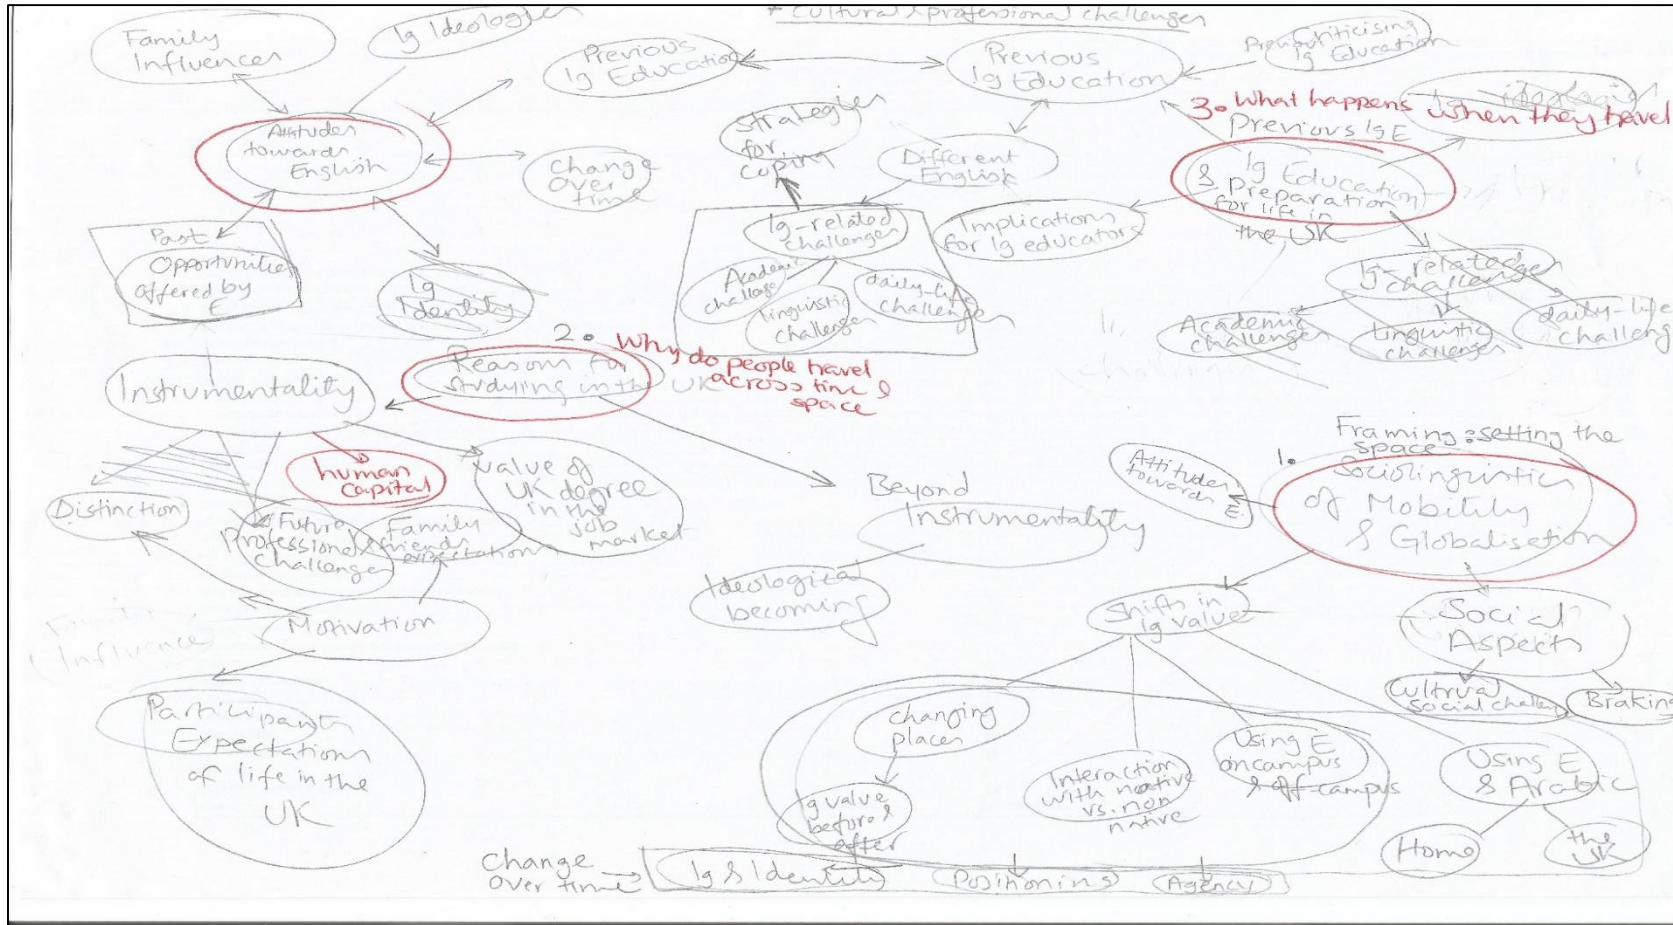 * Cultural & professional challenges
Family
Influences
lg Ideologies
Previous
lg Education
Previous
lg Education
Criticising
lg Education
Attitudes
towards
English
Change
over
time
Strategies
for
coping
Different
English
3. What happens
when they travel
Previous lg E
lg Education
& preparation
for life in
the UK
Implications
for lg educators
lg-related
challenges
Academic
challenges
linguistic
challenges
daily-life
challenges
Past
Opportunities
offered by
E
lg
Identity
lg-related
challenges
Academic
challenges
Linguistic
challenges
daily-life
challeng
2. Why do people travel
across time &
space
Reasons for
studying in the UK
Instrumentality
human
capital
value of
UK degree
in the
job
market
Distinction
Future
Professional
Challenges
Family
& friends
expectations
Motivation
Influence
Participants
Expectations
of life in the
UK
Beyond
Instrumentality
Ideological
becoming
Framing: setting the
space
1. Sociolinguistics
of Mobility
& Globalisation
Attitudes
towards
E.
Shifts in
lg value
Social
Aspects
Cultrual
social challen
Braking
changing
places
lg value
before &
after
Interaction
with native
vs. non
native
Using E
on campus
& off-campus
Using E
& Arabic
Home
the
UK
Change
over time
lg & Identity
Positioning
Agency